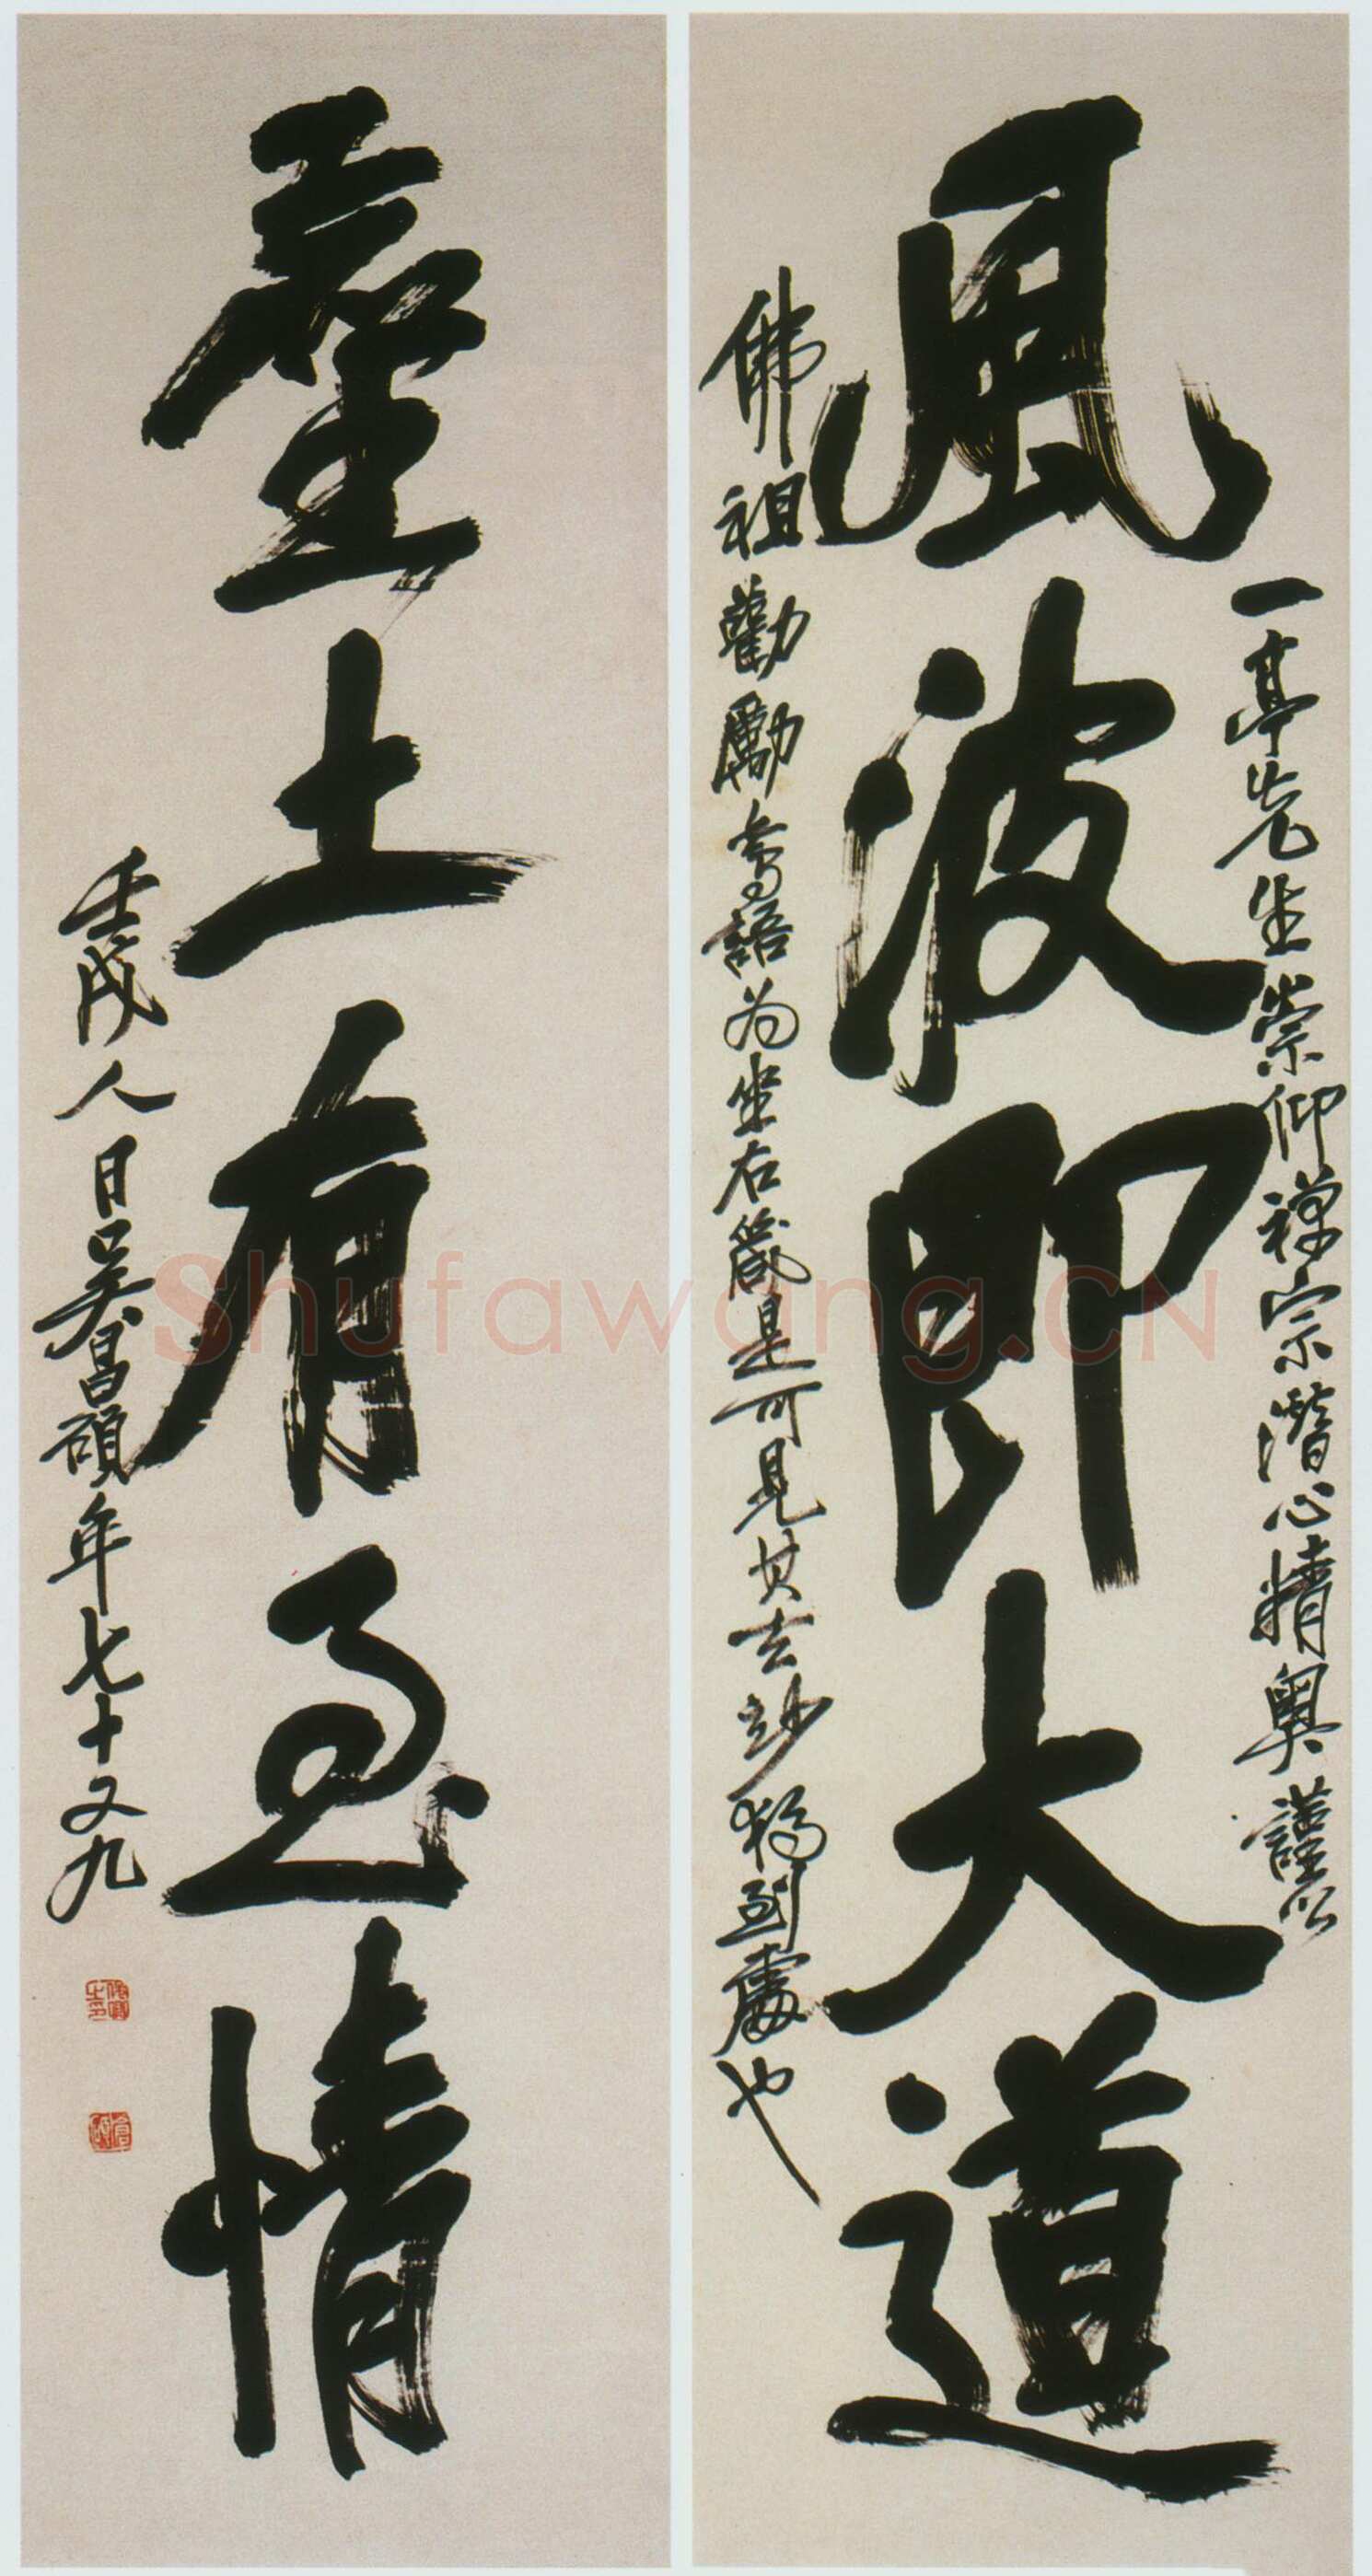 風波即大道
一亭先生崇仰禪宗潛心精奧謹以
佛祖勸勵語為坐右箴是可見其玄玅獨到處也
塵土有至情
壬戌人日吳昌碩年七十又九
俊卿之印
倉碩
Shufawang.CN